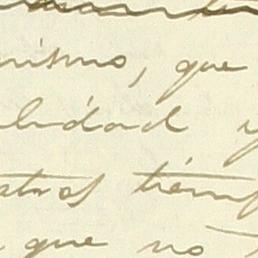 nismo, que
lidad y
stros tiemp
que no